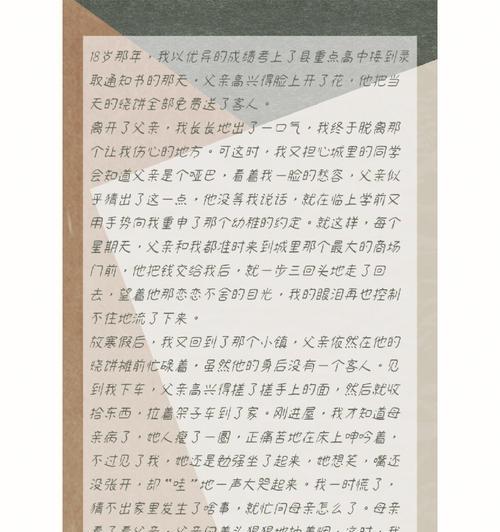 18岁那年，我以优异的成绩考上了县重点高中接到录
取通知书的那天，父亲高兴得脸上开了花，他把当
天的烧饼全部免费送了客人。
离开了父亲，我长长地出了一口气，我终于脱离那
个让我伤心的地方。可这时，我又担心城里的同学
会知道父亲是个哑巴，看着我一脸的愁容，父亲似
乎猜出了这一点，他没等我说话，就在临上学前又
用手势向我重申了那个幼稚的约定。就这样，每个
星期天，父亲和我都准时来到城里那个最大的商场
门前，他把钱交给我后，就一步三回头地走了回
去，望着他那恋恋不舍的目光，我的眼泪再也控制
不住地流了下来。
放寒假后，我又回到了那个小镇，父亲依然在他的
烧饼摊前忙碌着，虽然他的身后没有一个客人。见
到我下车，父亲高兴得搓了搓手上的面，然后就收
拾东西，拉着架子车到了家。刚进屋，我才知道母
亲病了，她人瘦了一圈，正痛苦地在床上呻吟着，
不过见了我，她还是勉强坐了起来，她想笑，嘴还
没张开，却“哇”地一声大哭起来。我一时慌了，
猜不出家里发生了啥事，就忙问母亲怎么了。母亲